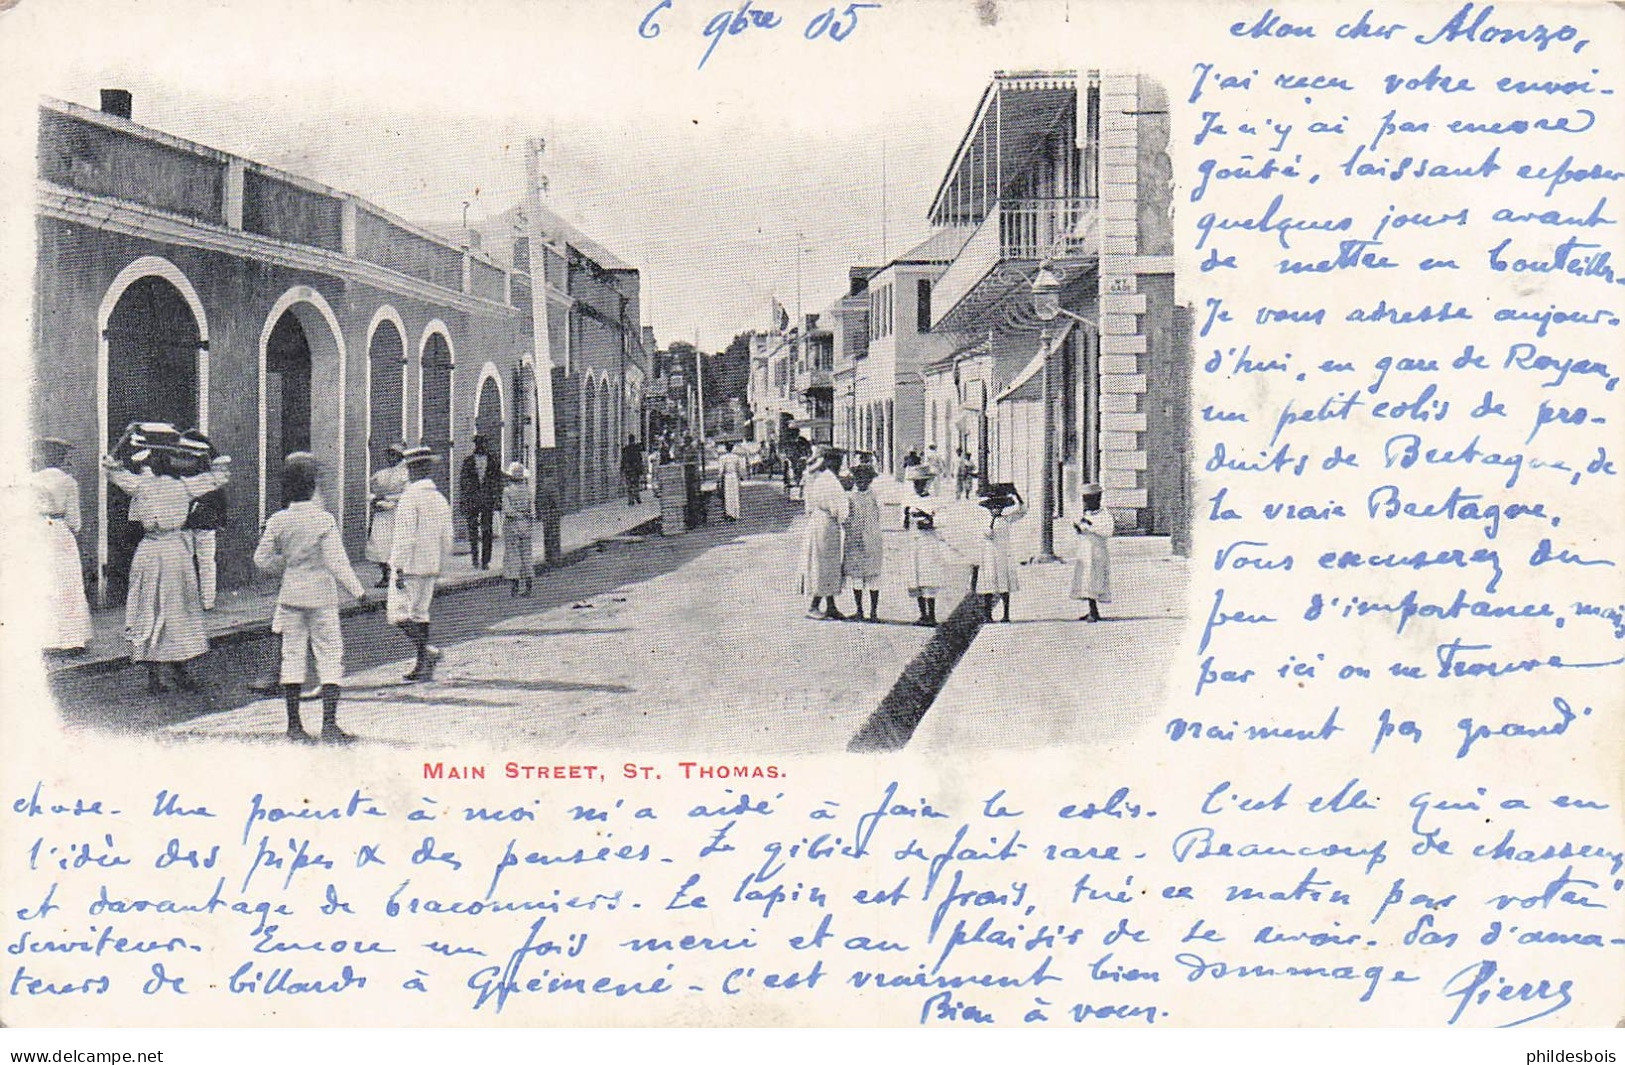 6 9bre 05
Mon cher Alonzo,
J'ai reçu votre envoi.
Je n'y ai pas encore
goûté, laissant reposer
quelques jours avant
de mettre en bouteilles.
Je vous adresse aujour-
d'hui, en gare de Royan,
un petit colis de pro-
duits de Bretagne, de
la vraie Bretagne.
Vous excuserez du
peu d'importance, mais
par ici on ne trouve
vraiment pas grand'
MAIN STREET, ST. THOMAS.
chose. Une parente à moi m'a aidé à faire le colis. C'est elle qui a eu
l'idée des pipes & des pensées. Le gibier se fait rare. Beaucoup de chasseurs
et davantage de braconniers. Le lapin est frais, tué ce matin par votre
serviteur. Encore une fois merci et au plaisir de se revoir. Pas d'ama-
teurs de billards à Guémené. C'est vraiment bien dommage
Bien à vous. Pierre
delcampe.net
phildesbois